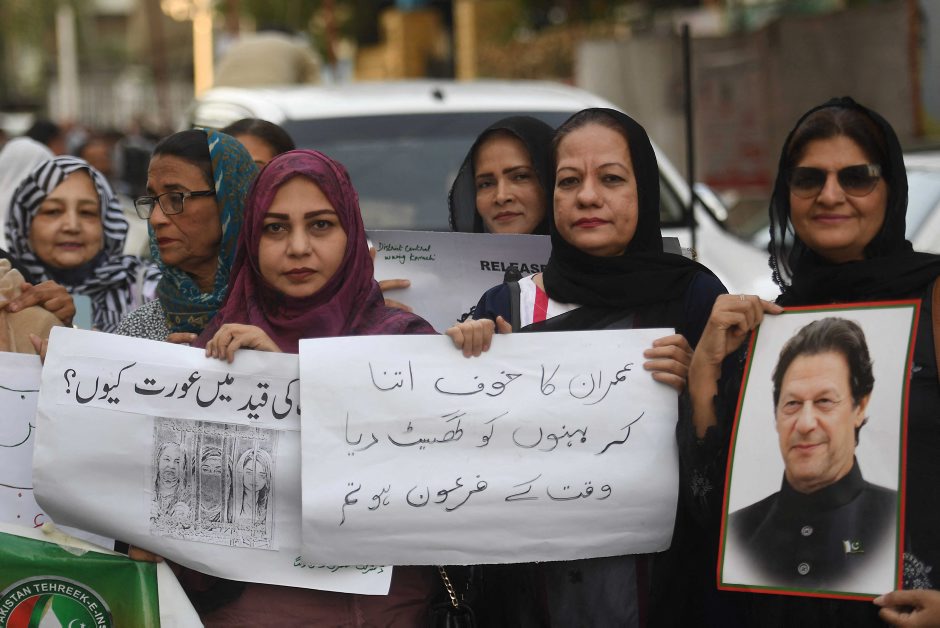 District Central
wing Karachi
RELEAS
کی قید میں عورت کیوں؟
عمران کا خوف اتنا
کہ بہنوں کو گھسیٹ دیا
وقت کے فرعون ہو تم
PAKISTAN TEHREEK-E-